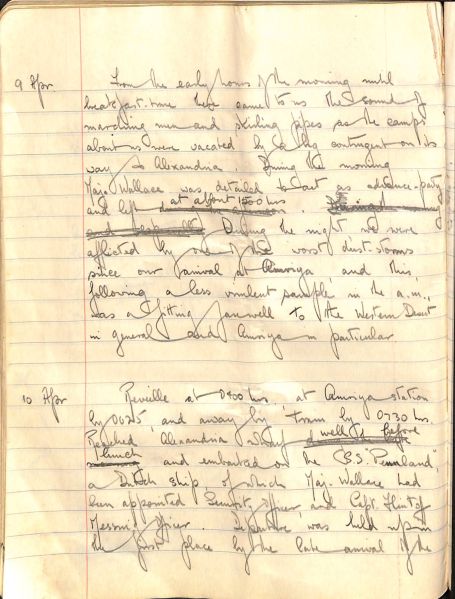 9 Apr From the early hours of the morning until
breakfast-time there came to us the sound of
marching men and skirling pipes as the camps
about us were vacated by a big contingent on its
way to Alexandria. During the morning
Maj. Wallace was detailed to act as advance-party
and left at about 1500 hrs.
During the night we were
afflicted by one of the worst dust-storms
since our arrival at Amriya, and this
following a less virulent sample in the a.m.,
was a fitting farewell to the Western Desert
in general and Amriya in particular.
10 Apr Reveille at 0400 hrs, at Amriya station
by 0625, and away by train by 0730 hrs.
Reached Alexandria well before
lunch and embarked on the S.S. "Pennland",
a Dutch ship of which Maj. Wallace had
been appointed Security Officer and Capt. Flint
Messing Officer. Departure was held up in
the first place by the late arrival of the